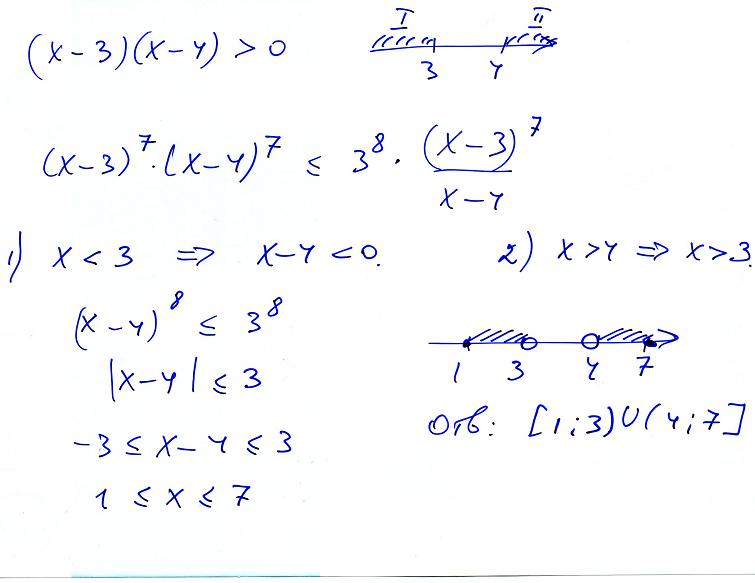 (x-3)(x-4) > 0
I II
3 4
(x-3)^7·(x-4)^7 ≤ 3^8 · (x-3)^7/(x-4)
1) x < 3 ⇒ x-4 < 0.
(x-4)^8 ≤ 3^8
|x-4| ≤ 3
-3 ≤ x-4 ≤ 3
1 ≤ x ≤ 7
2) x > 4 ⇒ x > 3.
1 3 4 7
Отв: [1;3)∪(4;7]